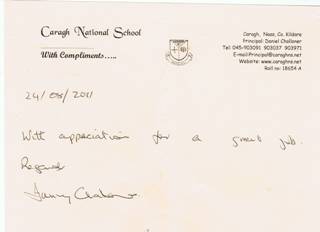 Caragh National School
With Compliments.....
Caragh, Naas, Co. Kildare
Principal: Daniel Challoner
Tel: 045-903091 903037 903971
E-mail:Principal@caraghns.ie
Website: www.caraghns.ie
Roll no: 18654 A
24/08/2011
With appreciation for a great job.
Regards